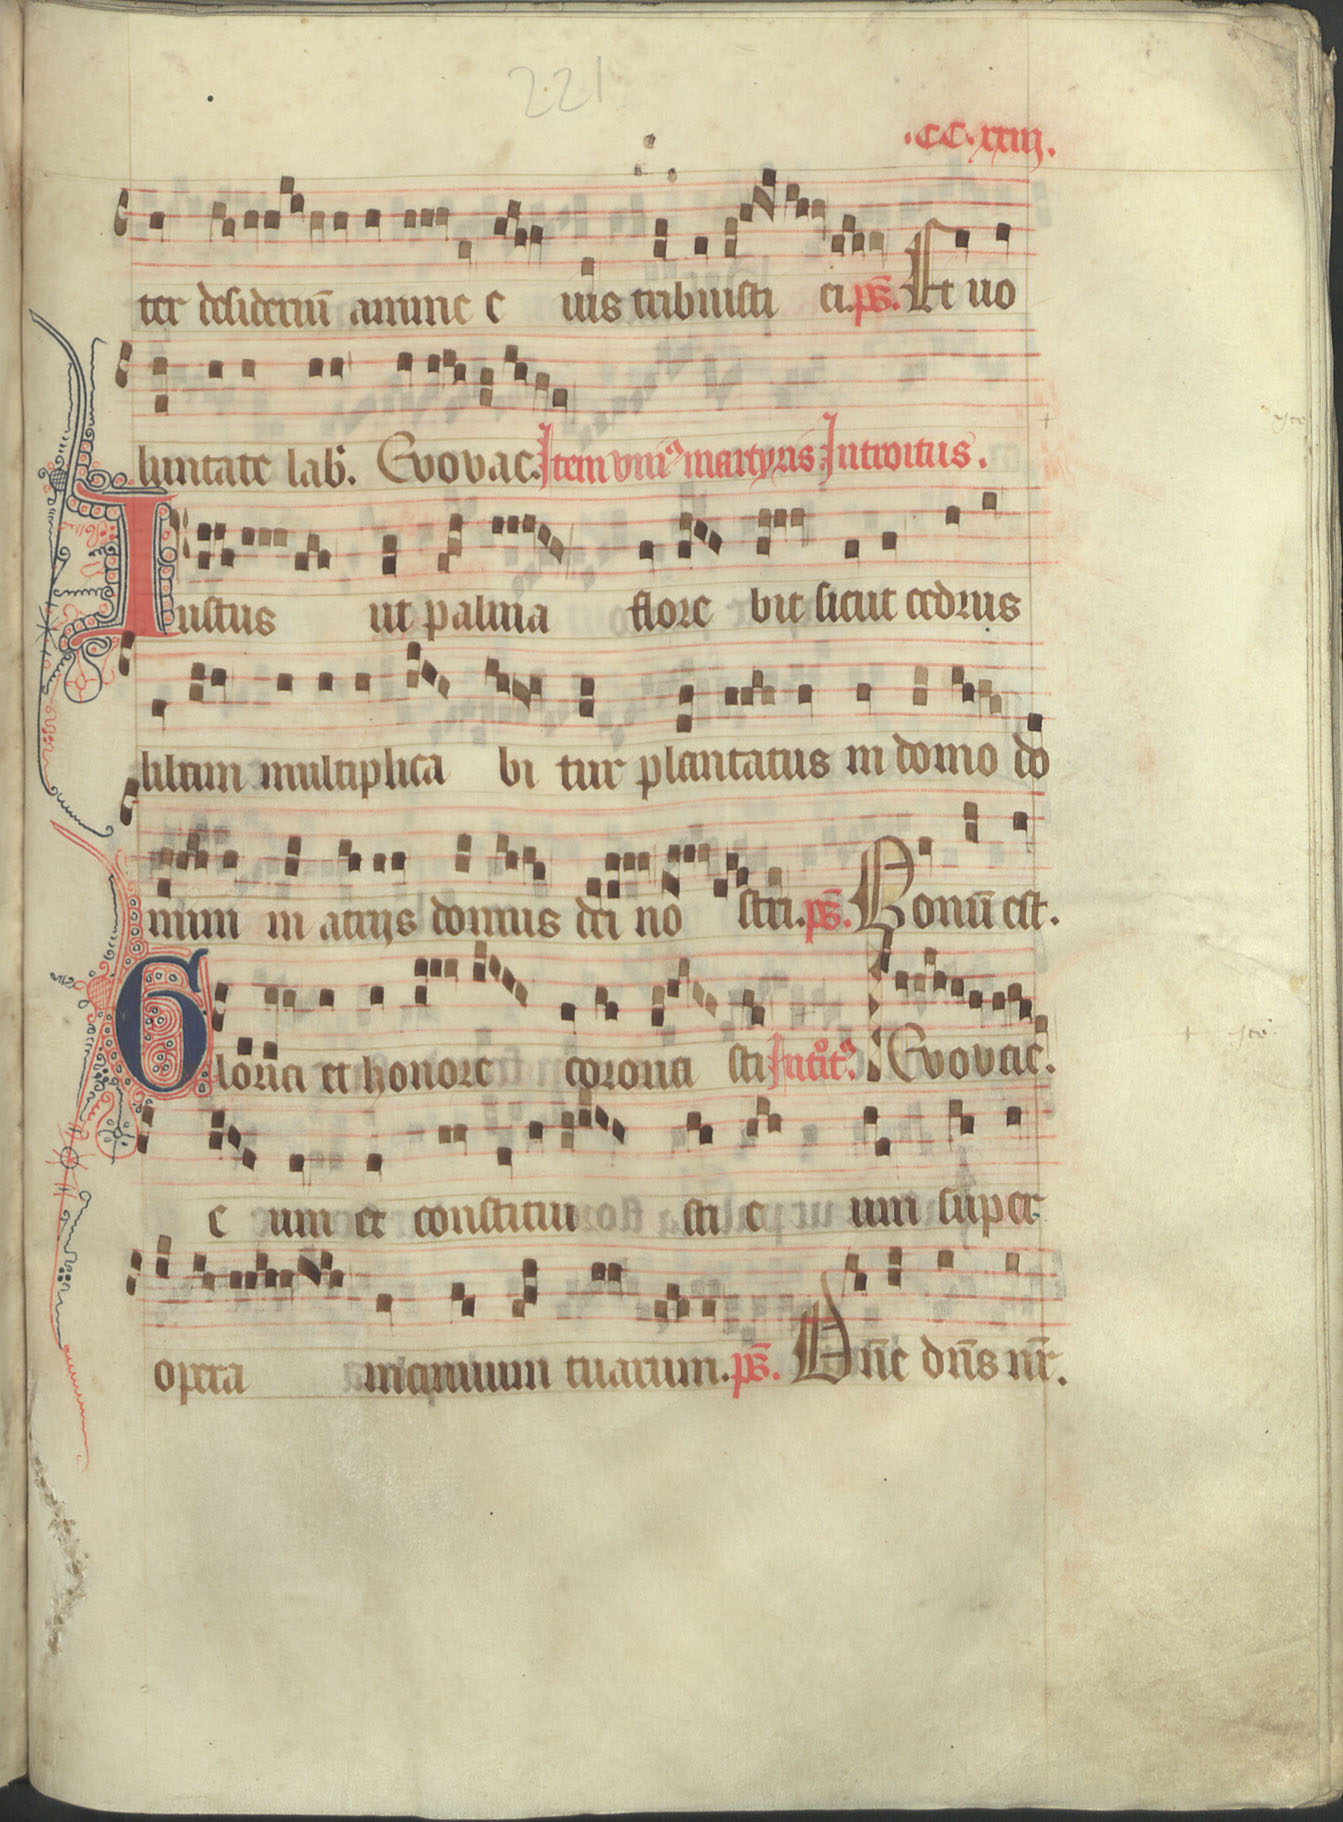 221
.CC.xxiij.
ter desideriū anime e ius tribuisti ei. ps̄. Et uo
luntate lab. Evovae. Item vniꝰ martyris. Introitus.
Iustus ut palma flore bit sicut cedrus
libani multiplica bi tur plantatus in domo do
mini in atrijs domus dei no stri. ps̄. Bonū est.
Gloria et honore corona sti Evovae.
e um et constitui sti e um super
opera manuum tuarum. ps̄. Dn̄e dn̄s nr̄.